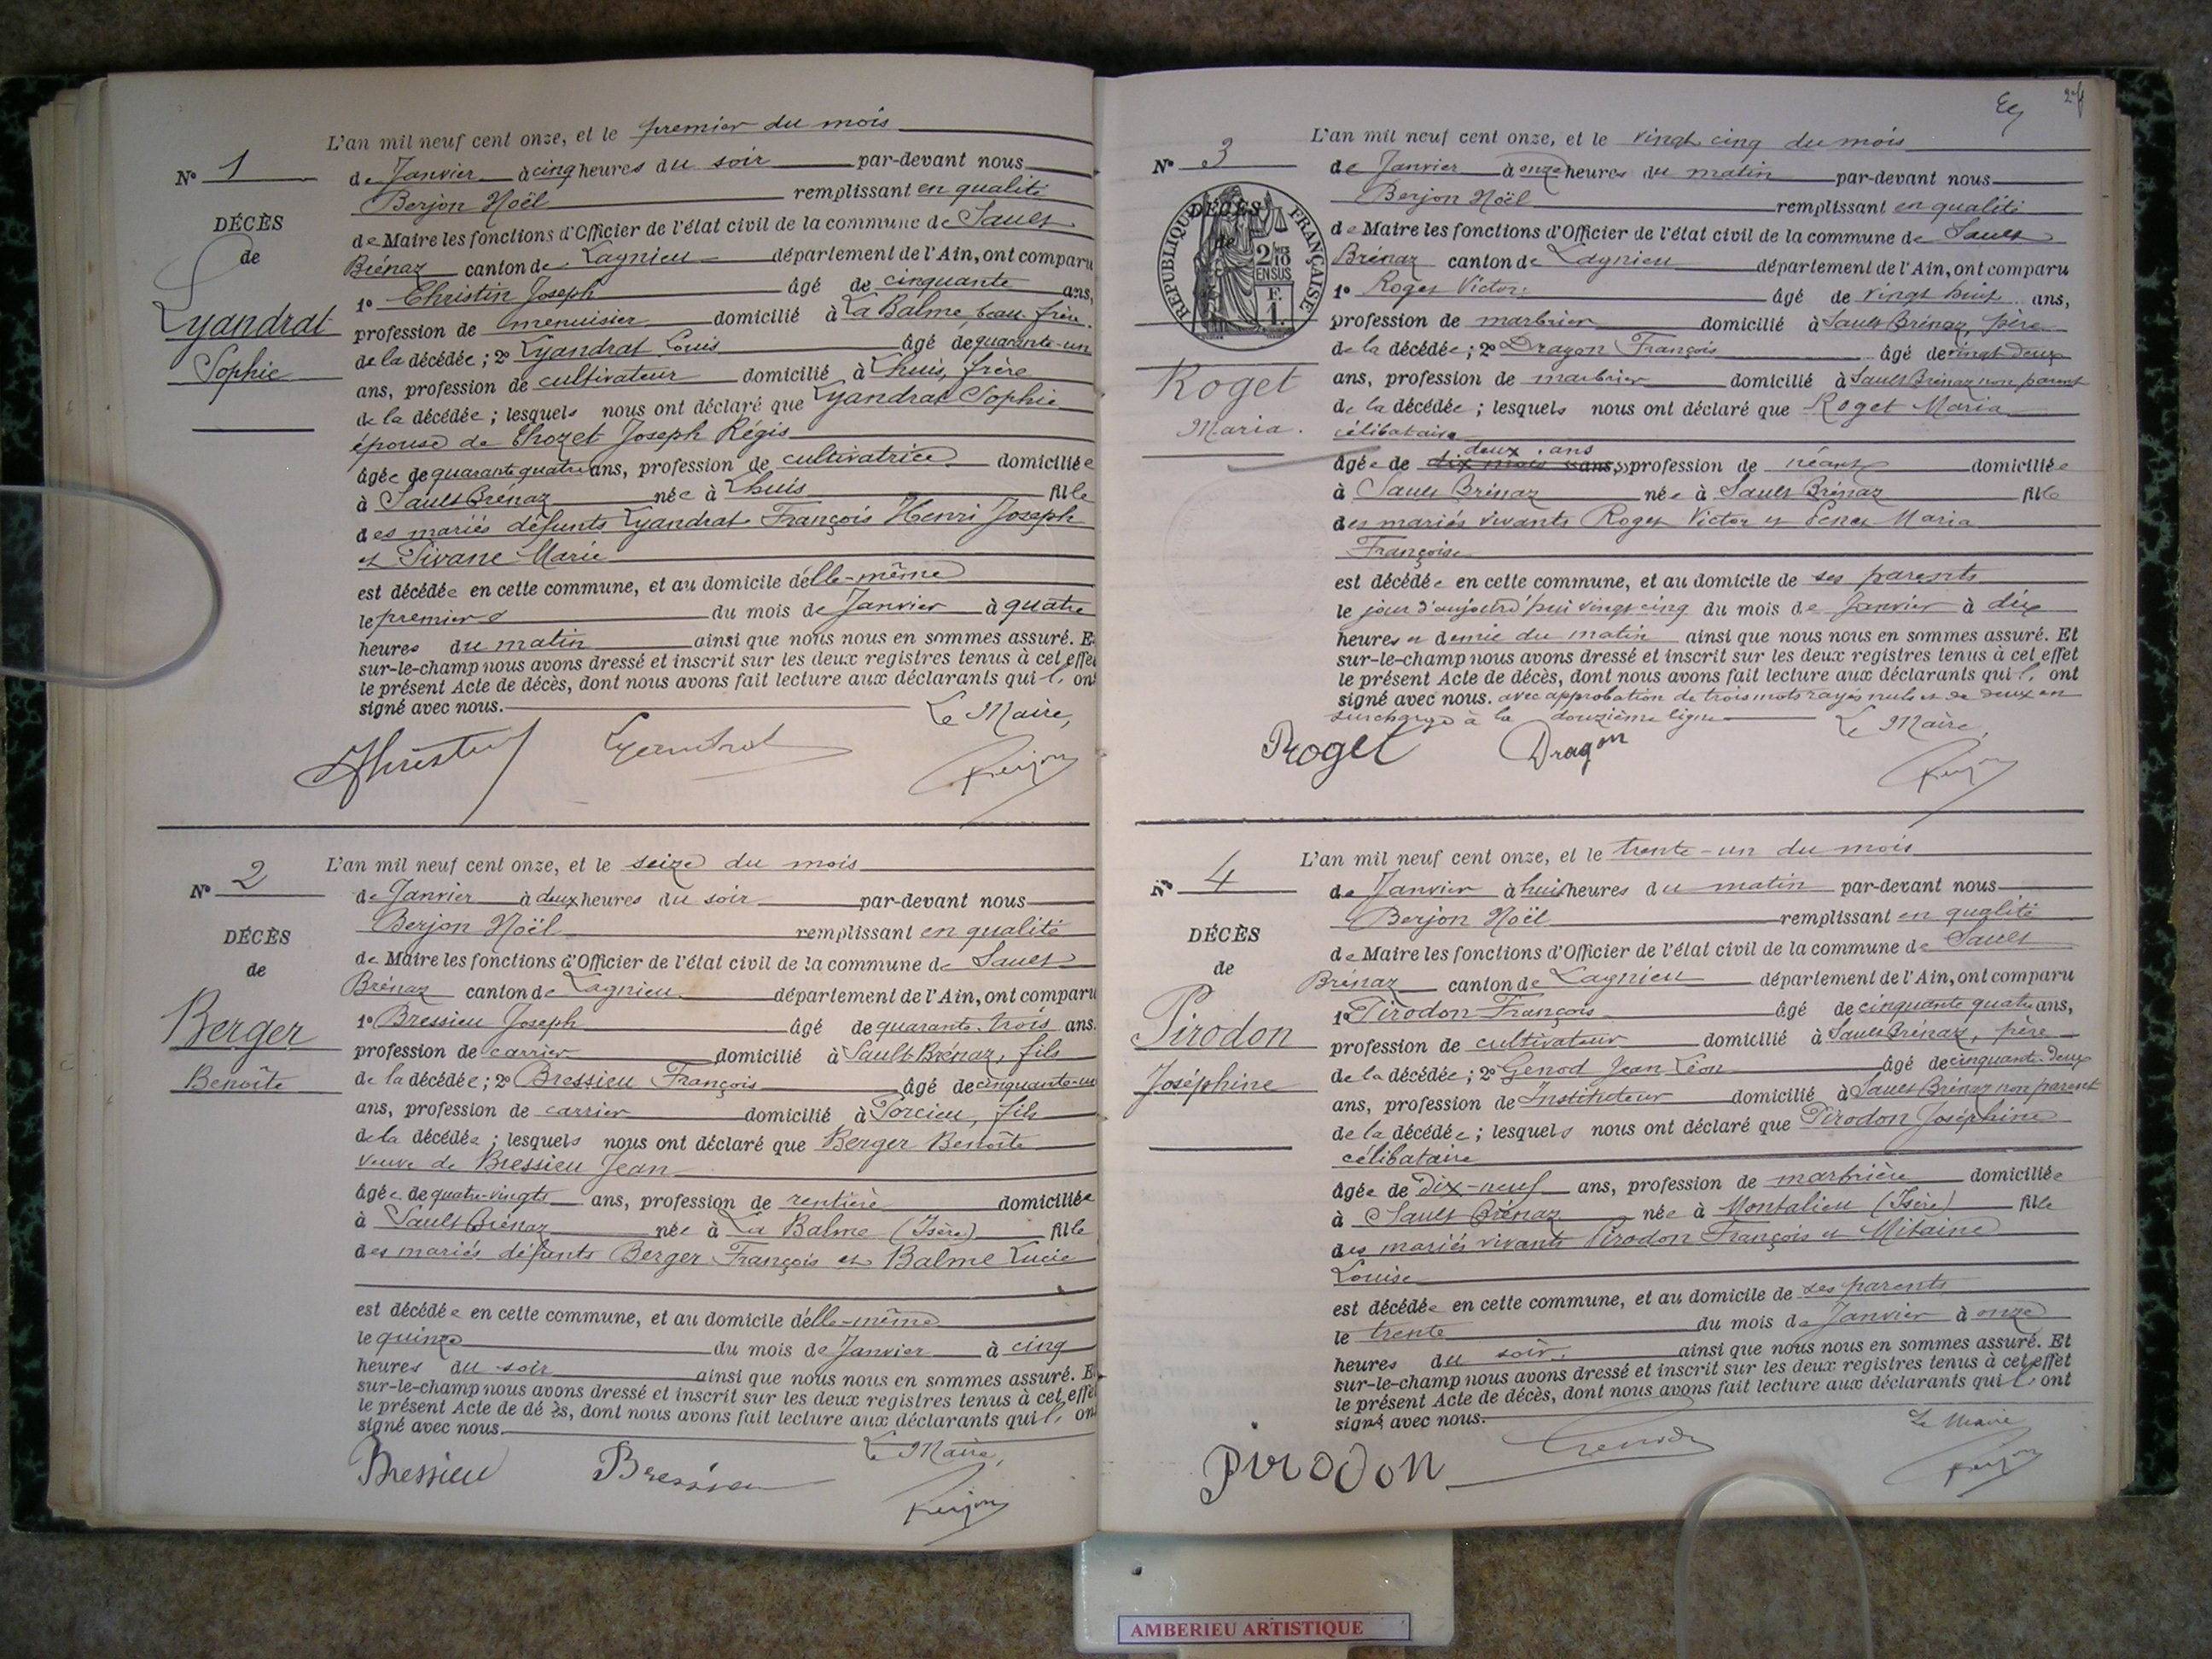 L'an mil neuf cent onze, et le premier du mois
N° 1
de Janvier à cinq heures du soir par-devant nous
Berjon Noël remplissant en qualité
DÉCÈS
de Maire les fonctions d'Officier de l'état civil de la commune de Sault
de
Brénaz canton de Lagnieu département de l'Ain, ont comparu
1° Christin Joseph âgé de cinquante ans,
Lyandrat
profession de menuisier domicilié à La Balme, beau-frère
Sophie
de la décédée ; 2° Lyandrat Louis âgé de quarante-un
ans, profession de cultivateur domicilié à Lhuis, frère
de la décédée ; lesquels nous ont déclaré que Lyandrat Sophie
épouse de Thozet Joseph Régis
âgée de quarante quatre ans, profession de cultivatrice domiciliée
à Sault Brénaz née à Lhuis fille
des mariés défunts Lyandrat François Henri Joseph
et Pivane Marie
est décédée en cette commune, et au domicile d'elle-même
le premier du mois de Janvier à quatre
heures du matin ainsi que nous nous en sommes assuré. E
sur-le-champ nous avons dressé et inscrit sur les deux registres tenus à cet effet
le présent Acte de décès, dont nous avons fait lecture aux déclarants qui l' ont
signé avec nous.
Le Maire,
Christin Lyandrat Berjon
L'an mil neuf cent onze, et le seize du mois
N° 2
de Janvier à deux heures du soir par-devant nous
Berjon Noël remplissant en qualité
DÉCÈS
de Maire les fonctions d'Officier de l'état civil de la commune de Sault
de
Brénaz canton de Lagnieu département de l'Ain, ont comparu
1° Bressieu Joseph âgé de quarante-trois ans.
Berger
profession de carrier domicilié à Sault-Brénaz, fils
Benoîte
de la décédée ; 2° Bressieu François âgé de cinquante-un
ans, profession de carrier domicilié à Porcieu, fils
de la décédée ; lesquels nous ont déclaré que Berger Benoîte
veuve de Bressieu Jean
âgée de quatre-vingts ans, profession de rentière domiciliée
à Sault Brénaz née à La Balme (Isère) fille
des mariés défunts Berger François et Balme Lucie
est décédée en cette commune, et au domicile d'elle-même
le quinze du mois de Janvier à cinq
heures du soir ainsi que nous nous en sommes assuré. E
sur-le-champ nous avons dressé et inscrit sur les deux registres tenus à cet effet
le présent Acte de dé ès, dont nous avons fait lecture aux déclarants qui l' ont
signé avec nous.
Le Maire,
Bressieu Bressieu Berjon
L'an mil neuf cent onze, et le vingt cinq du mois
N° 3
de Janvier à onze heures du matin par-devant nous
Berjon Noël remplissant en qualité
RÉPUBLIQUE FRANÇAISE
DÉCÈS
de
2/10 EN SUS
F.
1.
de Maire les fonctions d'Officier de l'état civil de la commune de Sault
Brénaz canton de Lagnieu département de l'Ain, ont comparu
1° Roget Victor âgé de vingt huit ans,
profession de marbrier domicilié à Sault Brénaz, père
de la décédée ; 2° Dragon François âgé de vingt deux
Roget
ans, profession de marbrier domicilié à Sault Brénaz non parent
Maria.
de la décédée ; lesquels nous ont déclaré que Roget Maria
célibataire
deux ans
âgée de dix mois ans, profession de néant domiciliée
à Sault Brénaz née à Sault Brénaz fille
des mariés vivants Roget Victor et Maria
Françoise
est décédée en cette commune, et au domicile de ses parents
le jour d'aujourd'hui vingt cinq du mois de Janvier à dix
heures et demie du matin ainsi que nous nous en sommes assuré. Et
sur-le-champ nous avons dressé et inscrit sur les deux registres tenus à cet effet
le présent Acte de décès, dont nous avons fait lecture aux déclarants qui l' ont
signé avec nous. avec approbation de trois mots rayés nuls et de deux en
surcharge à la douzième ligne Le Maire,
Roget Dragon Berjon
L'an mil neuf cent onze, et le trente-un du mois
N° 4
de Janvier à huit heures du matin par-devant nous
Berjon Noël remplissant en qualité
DÉCÈS
de Maire les fonctions d'Officier de l'état civil de la commune de Sault
de
Brénaz canton de Lagnieu département de l'Ain, ont comparu
1° Pirodon François âgé de cinquante quatre ans,
Pirodon
profession de cultivateur domicilié à Sault Brénaz, père
de la décédée ; 2° Genod Jean Léon âgé de cinquante-deux
Joséphine
ans, profession de Instituteur domicilié à Sault Brénaz non parent
de la décédée ; lesquels nous ont déclaré que Pirodon Joséphine
célibataire
âgée de dix-neuf ans, profession de marbrière domiciliée
à Sault Brénaz née à Montalieu (Isère) fille
des mariés vivants Pirodon François et Mitaine
Louise
est décédée en cette commune, et au domicile de ses parents
le trente du mois de Janvier à onze
heures du soir. ainsi que nous nous en sommes assuré. Et
sur-le-champ nous avons dressé et inscrit sur les deux registres tenus à cet effet
le présent Acte de décès, dont nous avons fait lecture aux déclarants qui l' ont
signé avec nous.
Le Maire
Pirodon Genod Berjon
AMBERIEU ARTISTIQUE